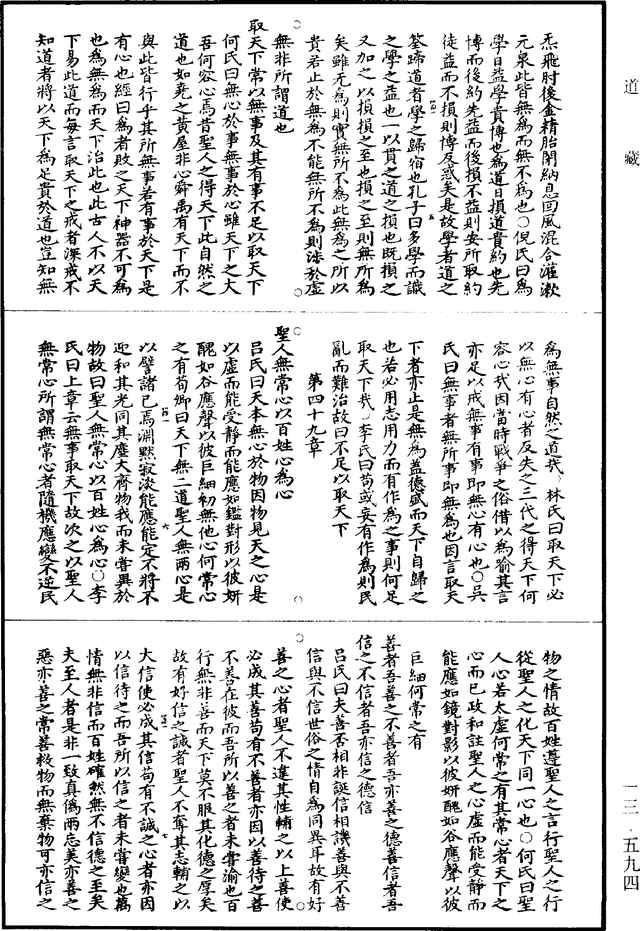 道藏
炁飛肘後金精胎閉納息回風混合灌漱
元泉此皆無為而無不為也○倪氏曰為
學日益學貴博也為道日損道貴約也先
博而後約先益而後損不益則安所取約
徒益而不損則博反惑矣是故學者道之
筌蹄道者學之歸宿也孔子曰多學而識
之學之益也一以貫之道之損也既損之
又加之以損損之至也損之至則無所為
矣雖无為則實無所不為此無為之所以
貴若止於無為不能無所不為則涉於虛
無非所謂道也
取天下常以無事及其有事不足以取天下
何氏曰無心於事無事於心雖天下之大
吾何容心焉昔聖人之得天下此自然之
道也如堯之黃屋非心舜禹有天下而不
與此皆行乎其所無事若有事於天下是
有心也經曰為者敗之天下神器不可為
也為無為而天下治此也此古人不以天
下易此道而每言取天下之戒者深戒不
知道者將以天下為足貴於道也豈知無
為無事自然之道哉○林氏曰取天下必
以無心有心者反失之三代之得天下何
容心哉因當時戰爭之俗借以為喻其言
亦足以戒無事有事即無心有心也○吳
氏曰無事者無所事即無為也因言取天
下者亦止是無為蓋德盛而天下自歸之
也若必用志用力而有作為之事則何足
取天下哉○李氏曰苟或妄有作為則民
亂而難治故曰不足以取天下
第四十九章
聖人無常心以百姓心為心
呂氏曰天本無心於物因物見天之心是
以虛而能受靜而能應如鑑對形以彼妍
醜如谷應聲以彼巨細初無他心何常心
之有荀卿曰天下無二道聖人無兩心是
以譬諸已焉淵默寂淡能應能定不將不
迎和其光同其塵大齊物我而未嘗異於
物故曰聖人無常心以百姓心為心○李
氏曰上章云無事取天下故次之以聖人
無常心所謂無常心者隨機應變不逆民
物之情故百姓遵聖人之言行聖人之行
從聖人之化天下同一心也○何氏曰聖
人心若太虛何常之有其常心者天下之
心而已政和註聖人之心虛而能受靜而
能應如鏡對影以彼妍醜如谷應聲以彼
巨細何常之有
善者吾善之不善者吾亦善之德善信者吾
信之不信者吾亦信之德信
呂氏曰夫善否相非誕信相譏善與不善
信與不信世俗之情自為同異耳故有好
善之心者聖人不違其性輔之以上善使
必成其善苟有不善者亦因以善待之善
不善在彼而吾所以善之者未嘗渝也百
行無非善而天下莫不服其化德之厚矣
故有好信之誠者聖人不奪其志輔之以
大信使必成其信苟有不誠之心者亦因
以信待之而吾所以信之者未嘗變也萬
情無非信而百姓確然無不信德之至矣
夫至人者是非一致真偽兩忘美亦善之
惡亦善之常善救物而無棄物可亦信之
一三·五九四